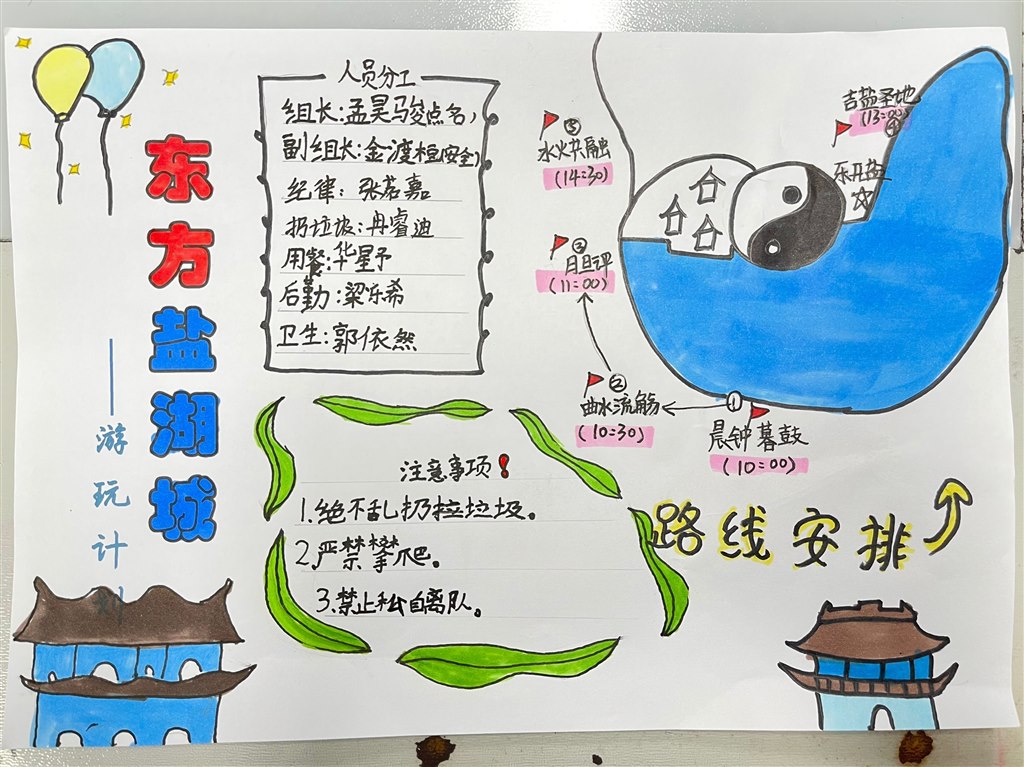 东方盐湖城
——游玩计划
人员分工
组长:孟昊骏(点名)
副组长:金渡桓(安全)
纪律:张茗嘉
扔垃圾:冉睿迪
用餐:华星予
后勤:梁乐希
卫生:郭依然
注意事项!
1.绝不乱扔拉垃圾。
2.严禁攀爬。
3.禁止私自离队。
③
水火共融
(14:30)
③
月旦评
(11:00)
②
曲水流觞
(10:30)
①
晨钟暮鼓
(10:00)
吉盐圣地
(13:00)
④
乐开盐
路线安排